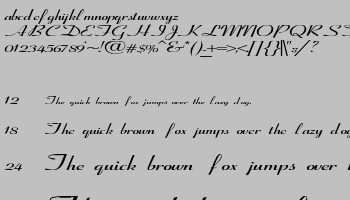 abcdefghijklmnopqrstuvwxyz
ABCDEFGHIJKLMNOPQRS
0123456789~!@#$%^&*()_+=<>,</[]{}\|":;/?
12 The quick brown fox jumps over the lazy dog.
18 The quick brown fox jumps over the lazy dog
24 The quick brown fox jumps over